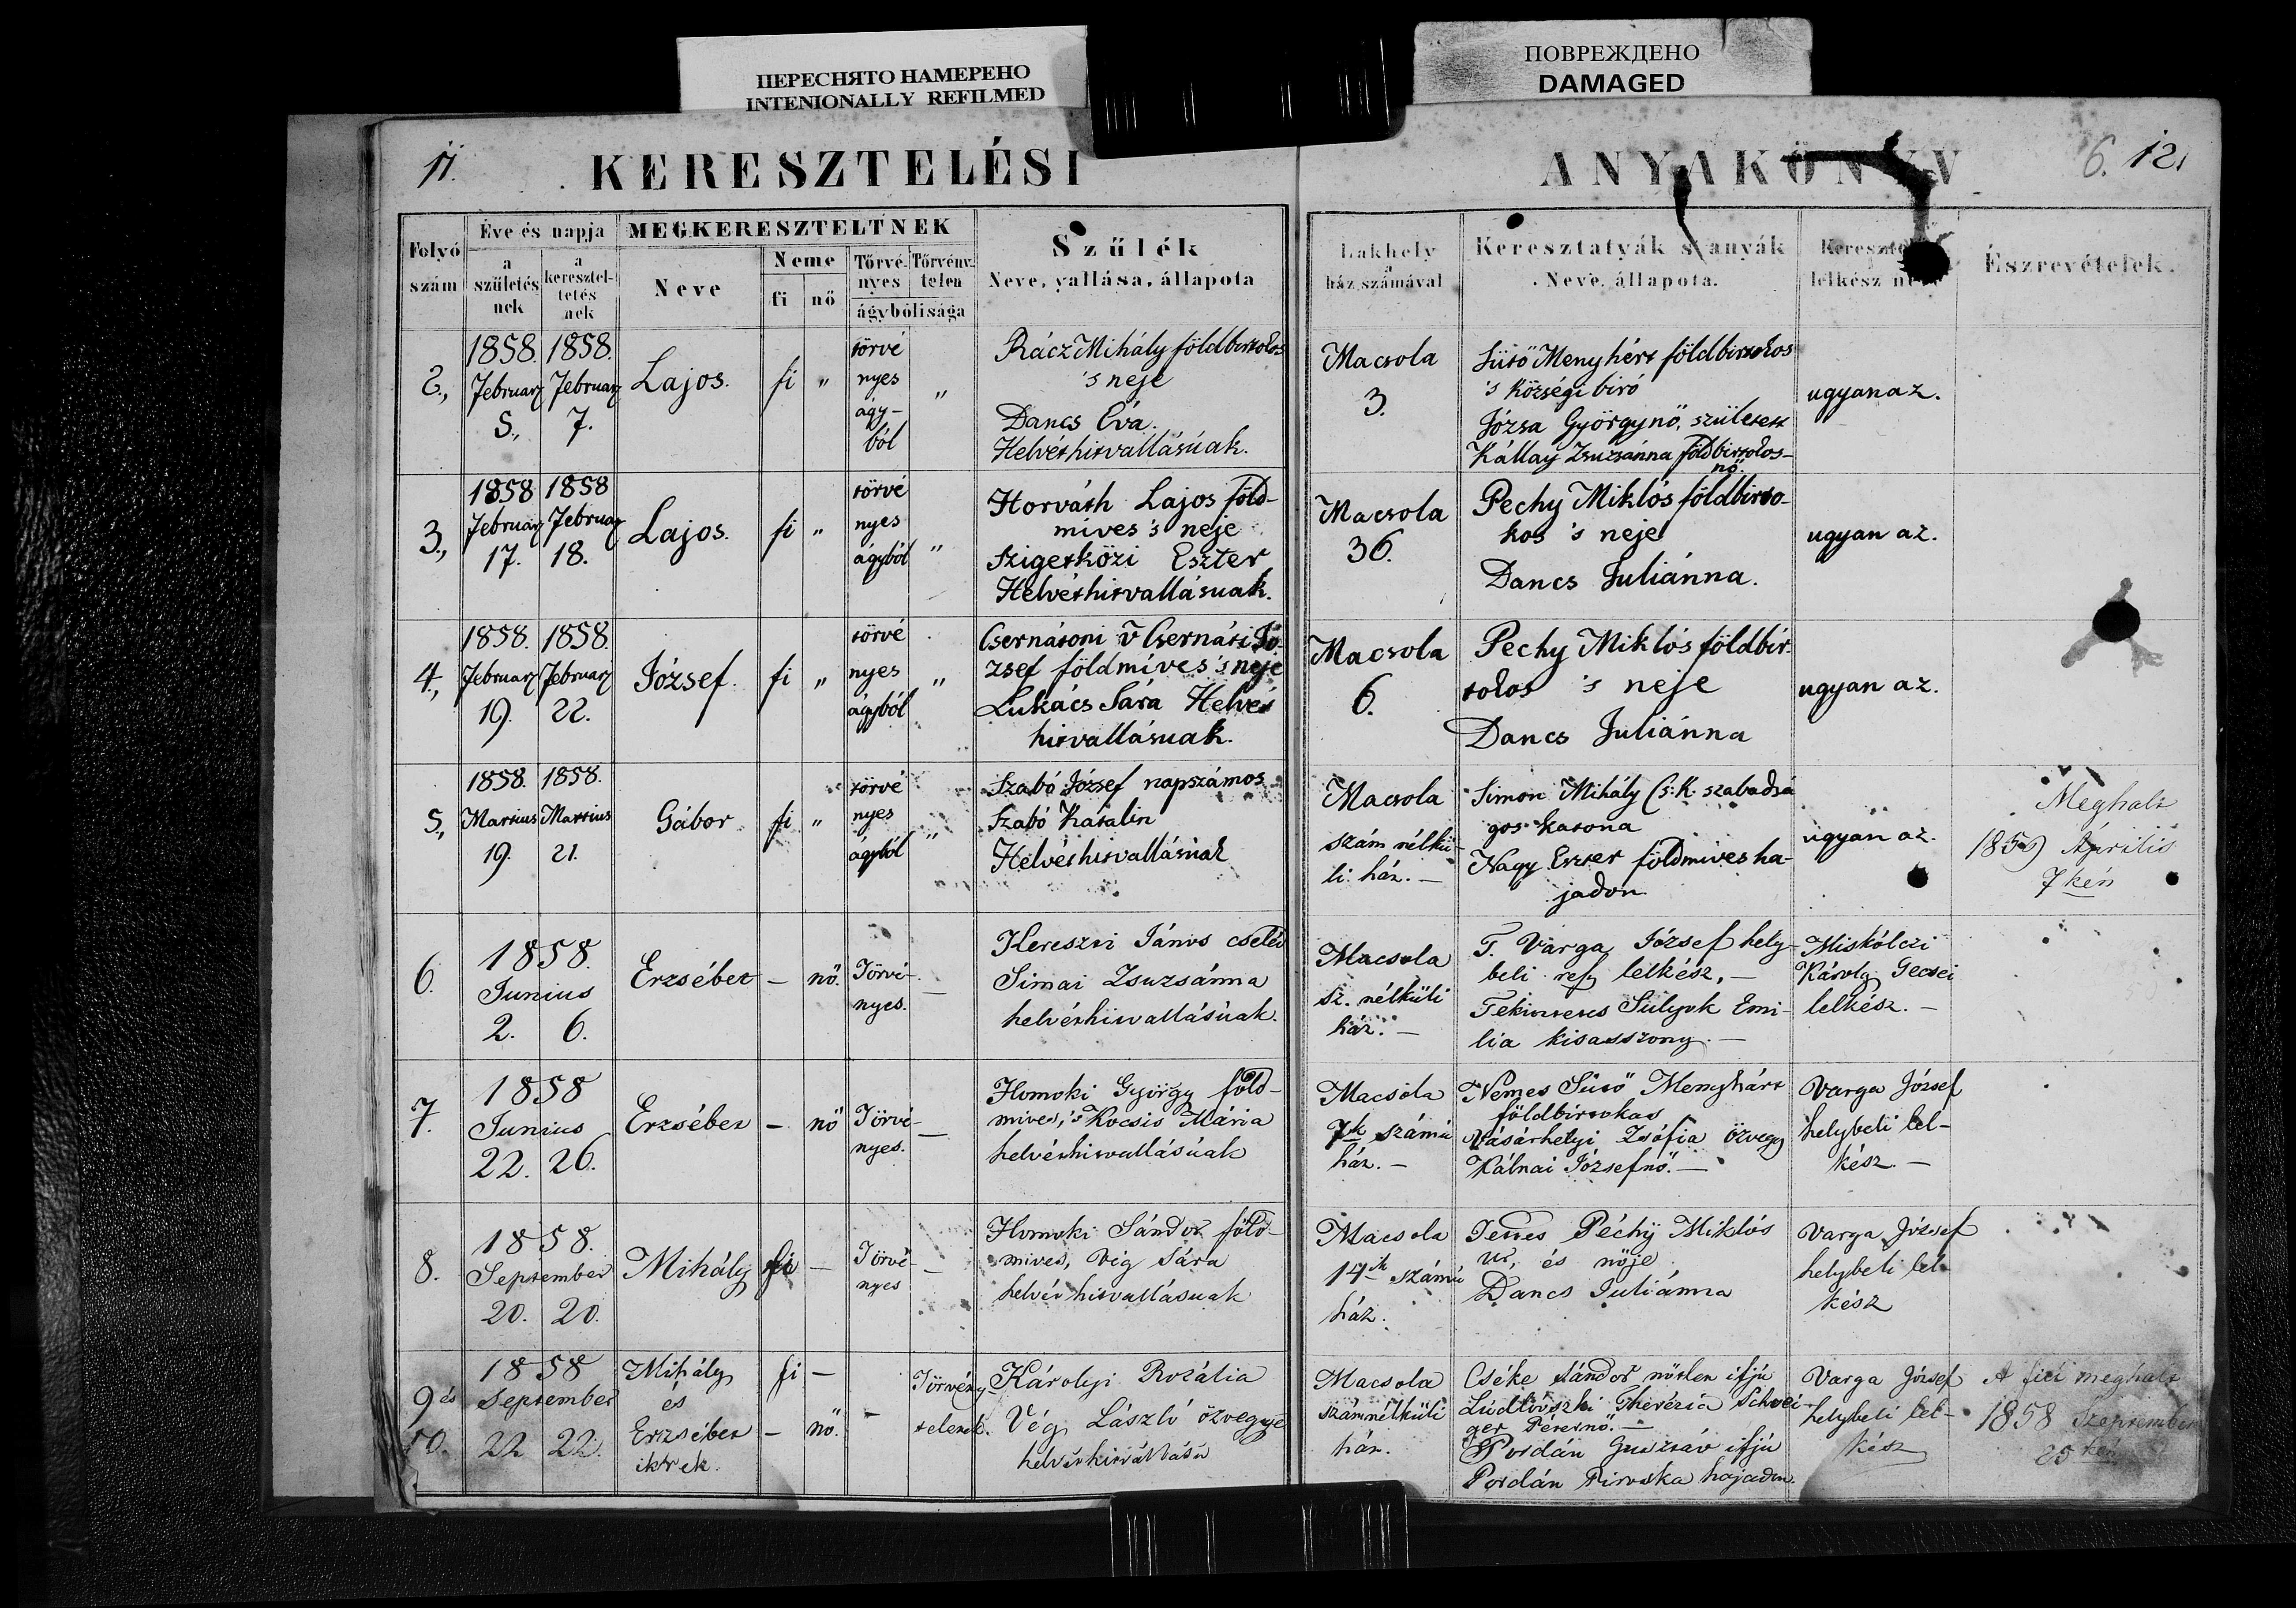 ПЕРЕСНЯТО НАМЕРЕНО
INTENIONALLY REFILMED
ПОВРЕЖДЕНО
DAMAGED
11.
KERESZTELÉSI
ANYAKÖNYV
6. 12,
Folyó szám
Éve és napja
a születés nek
a keresztel- tetés nek
MEGKERESZTELTNEK
Neve
Neme
fi
nő
Törvé- nyes
Törvény- telen
ágybólisága
Szűlék
Neve, vallása, állapota
Lakhely
a
ház számával
Keresztatyák s anyák
Neve, állapota.
Kereszte
lelkész ne
Észrevételek.
2., 1858. 1858.
Február Február
5., 7.
Lajos. fi „
törvé
nyes
ágy-
ból
„
Rácz Mihály földbirtokos
's neje
Dancs Éva.
Helvéthitvallásúak.
Macsola
3.
Sütő Menyhért földbirtokos
's községi biró
Józsa Györgynő, született
Kállay Zsuzsánna földbirtokos-
nő.
ugyanaz.
3., 1858 1858
Február Február
17. 18.
Lajos. fi „
törvé
nyes
ágyból
„
Horváth Lajos föld-
mives 's neje
Szigetközi Eszter
Helvéthitvallásuak.
Macsola
36.
Pechy Miklós földbirto-
kos 's neje
Dancs Juliánna.
ugyan az.
4., 1858. 1858.
Február Február
19. 22.
József. fi „
törvé
nyes
ágyból
„
Csernátoni v Csernáti Jó-
zsef földmives 's neje
Lukács Sára Helvét
hitvallásuak.
Macsola
6.
Pechy Miklós földbir-
tokos 's neje
Dancs Juliánna
ugyan az.
5., 1858. 1858.
Martius Martius
19. 21.
Gábor fi „
törvé
nyes
ágyból
„
Szabó József napszámos
Szabó Katalin
Helvéthitvallásuak
Macsola
szám nélkü-
li ház. —
Simon Mihály Cs. K. szabadsá
gos katona
Nagy Eszter földmives ha-
jadon
ugyan az.
Meghalt
1859 Április
7kén
6. 1858.
Junius
2. 6.
Erzsébet — nő.
Törvé-
nyes.
—
Kereszti János cseléd
Simai Zsuzsánna
helvéthitvallásúak.
Macsola
sz. nélküli
ház. —
T. Varga József hely-
beli ref lelkész, —
Tekintetes Sulyok Emi-
lia kisasszony. —
Miskólczi
Károly Gecsei
lelkész. —
7. 1858
Junius
22. 26.
Erzsébet — nő
Törvé-
nyes.
—
Homoki György föld-
mives, 's Kocsis Mária
helvéthitvallásúak
Macsola
7k számú
ház. —
Nemes Sütő Menyhárt
földbirtokos
Vásárhelyi Zsófia özvegy
Kálnai Józsefnő. —
Varga József
helybeli lel-
kész. —
8. 1858.
September
20. 20.
Mihály fi —
Törvé-
nyes
—
Homoki Sándor föld-
mives, Vig Sára
helvét hitvallásuak
Macsola
14ik számú
ház.
Péchÿ Miklós
ur, és nője
Dancs Juliánna
Varga József
helybeli lel-
kész
9 és
10. 1858
September
22 22.
Mihály fi —
és
Erzsébet — nő.
ikrek.
—
Törvény-
telenek.
Károlyi Rozália
Vég László özvegye
helvét hitvallású
Macsola
számnélküli
ház.
Cséke Sándor nőtlen ifjú
Ludlovszki Therézia Schvei-
ger Péternő. —
Pordán Gusztáv ifjú
Pordán Piroska hajadon.
Varga József
helybeli lel-
kész
A fiú meghalt
1858 Szeptember
25kén